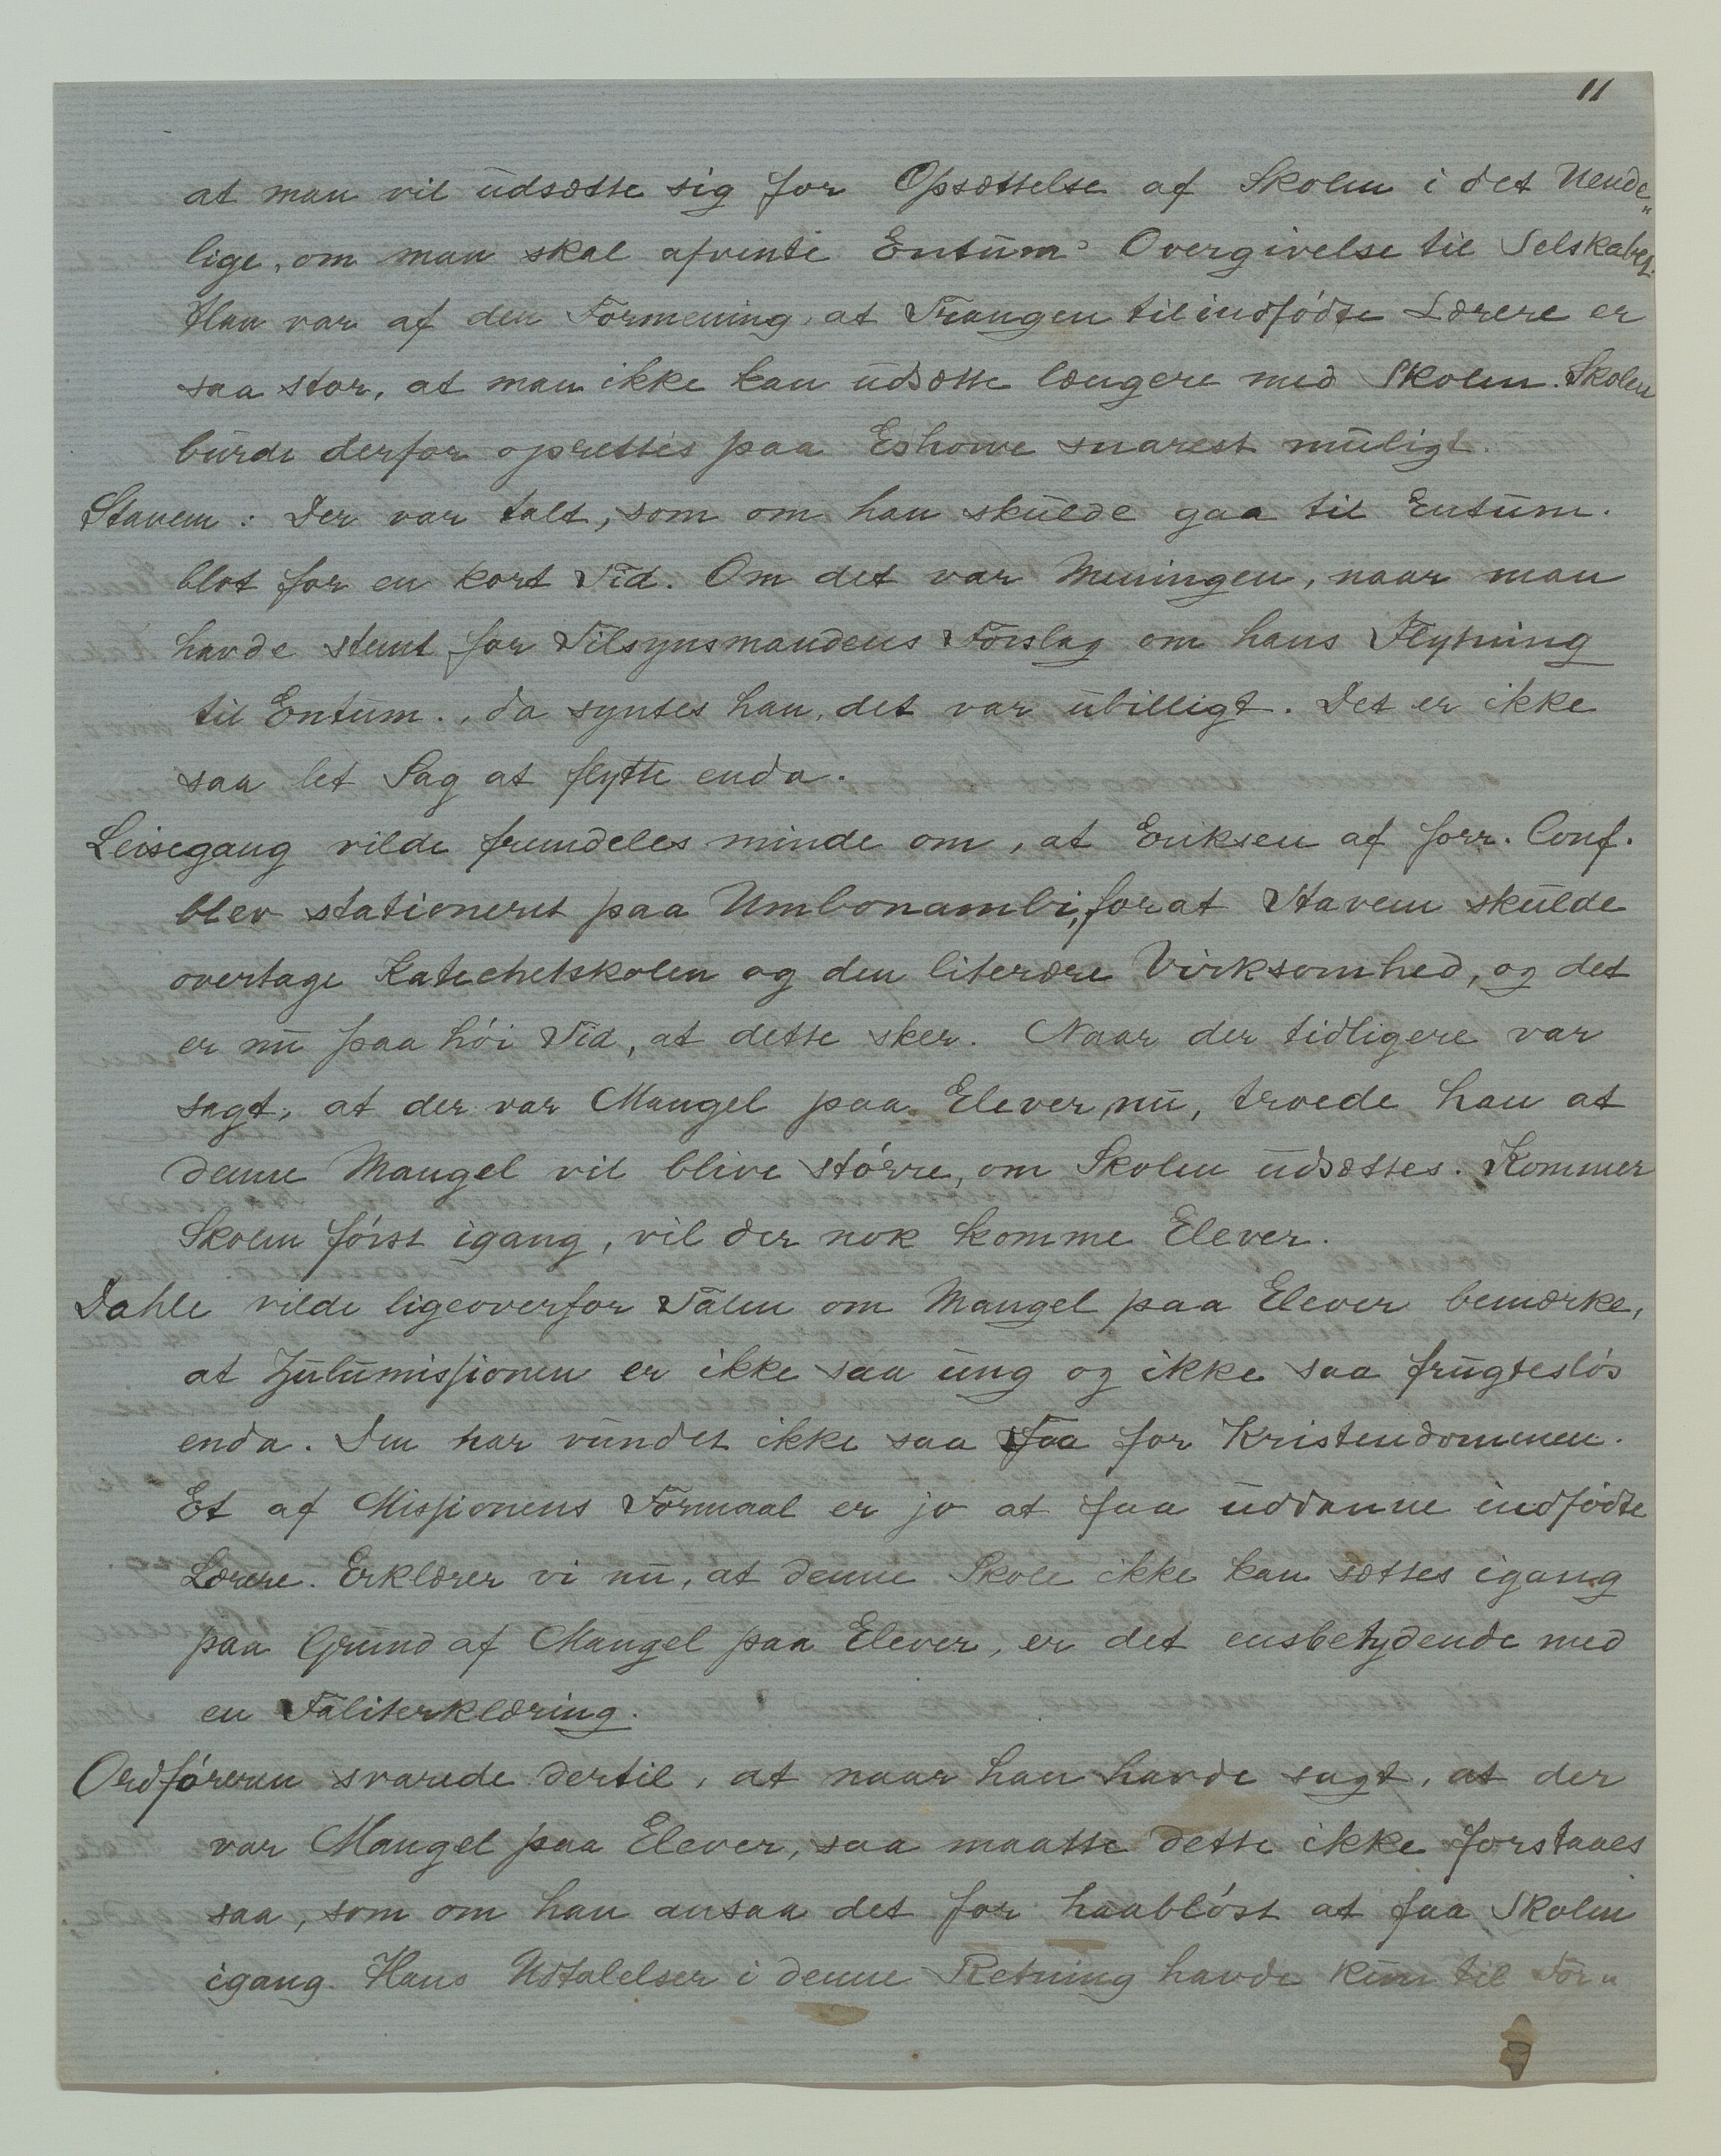 11
at man vil udsætte sig for Opsættelse af Skolen i det Uende„
lige, om man skal afvente Entum⁠s Overgivelse til Selskabet.
Han var af den Formening, at Trangen til indfödte Lærere er
saa stor, at man ikke kan udsætte længere med Skolen. Skolen
burde derfor oprettes paa Eshowe snarest muligt.
Stavem: Der var talt, som om han skulde gaa til Entum.
blot for en kort Tid. Om det var Meningen, naar man
havde stemt for Tilsynsmandens Forslag om hans Flytning
til Entum., da syntes han, det var ubilligt. Det er ikke
saa let Sag at flytte enda.
Leisegang vilde fremdeles minde om, at Eriksen af forr. Conf.
blev stationeret paa Umbonambi, forat Stavem skulde
overtage Katechetskolen og den literære Virksomhed, og det
er nu paa höi Tid, at dette sker. Naar der tidligere var
sagt, at der var Mangel paa Elever nu, troede han at
denne Mangel vil blive större, om Skolen udsættes. Kommer
Skolen först igang, vil der nok komme Elever.
Dahle vilde ligeoverfor Talen om Mangel paa Elever bemærke,
at Zulumissionen er ikke saa ung og ikke saa frugteslös
enda. Den har vundet ikke saa Faa for Kristendommen.
Et af Missionens Formaal er jo at faa uddanne indfödte
Lærere. Erklærer vi nu, at denne Skole ikke kan sættes igang
paa Grund af Mangel paa Elever, er det ensbetydende med
en Faliterklæring.
Ordföreren svarede dertil, at naar han havde sagt, at der
var Mangel paa Elever, saa maatte dette ikke forstaaes
saa, som om han ansaa det for haablöst at faa Skolen
igang. Hans Udtalelser i denne Retning havde kun til For„